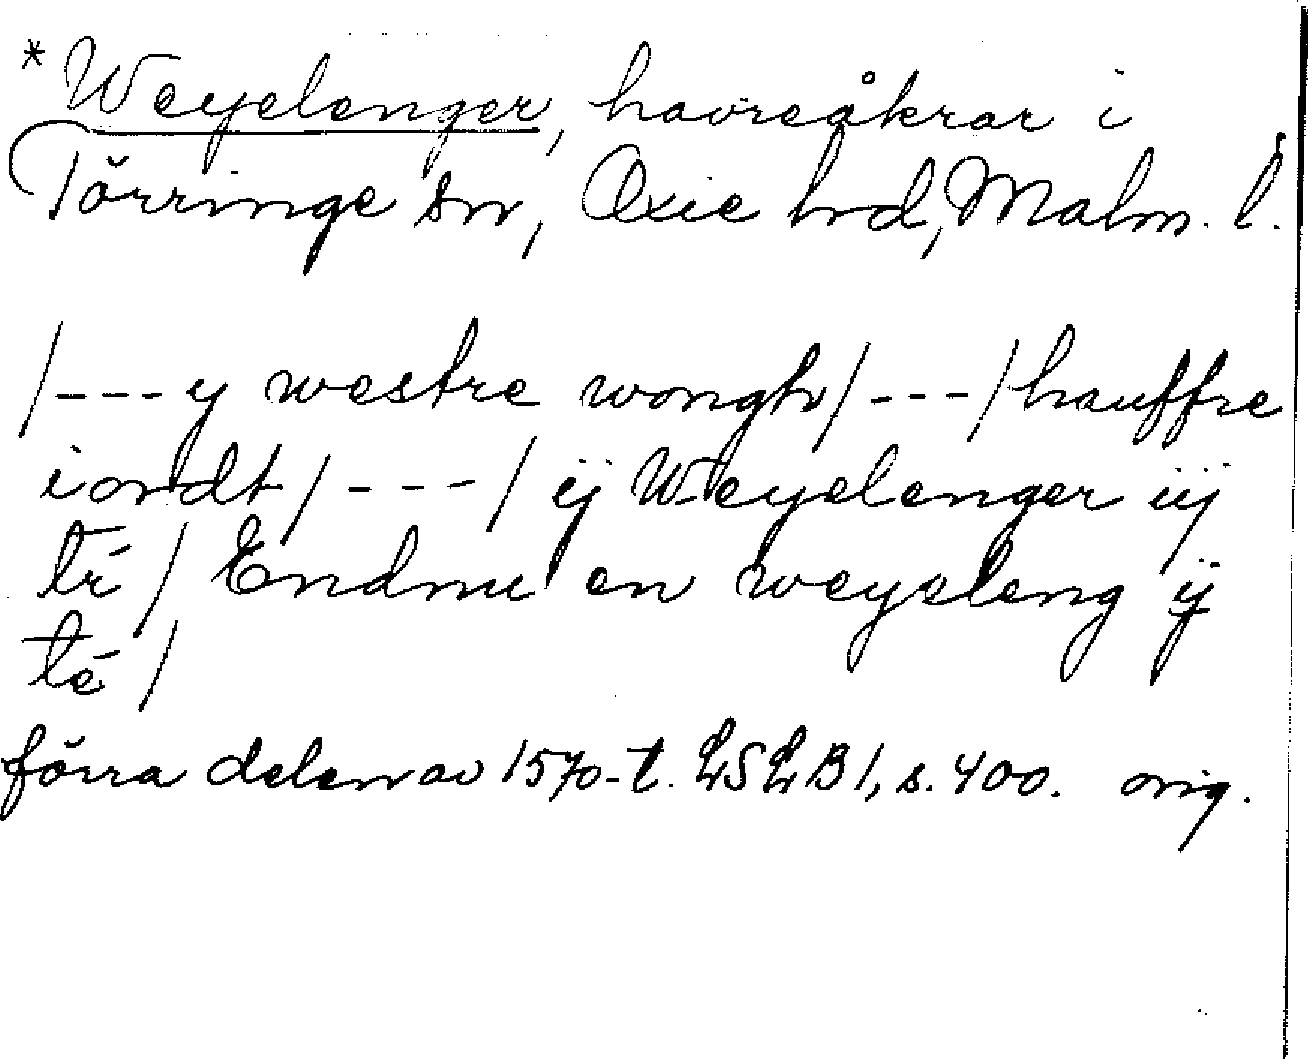 * Weyelenger, havreåkrar i
Törringe sn, Oxie hd, Malm. l.
/---y westre wongh/---/hauffre
iordt/---/ ij Weyelenger iij
tŕ/ Endnu en weyeleng ij
té/
förra delen av 1570-t. LSLB1, s. 400. orig.